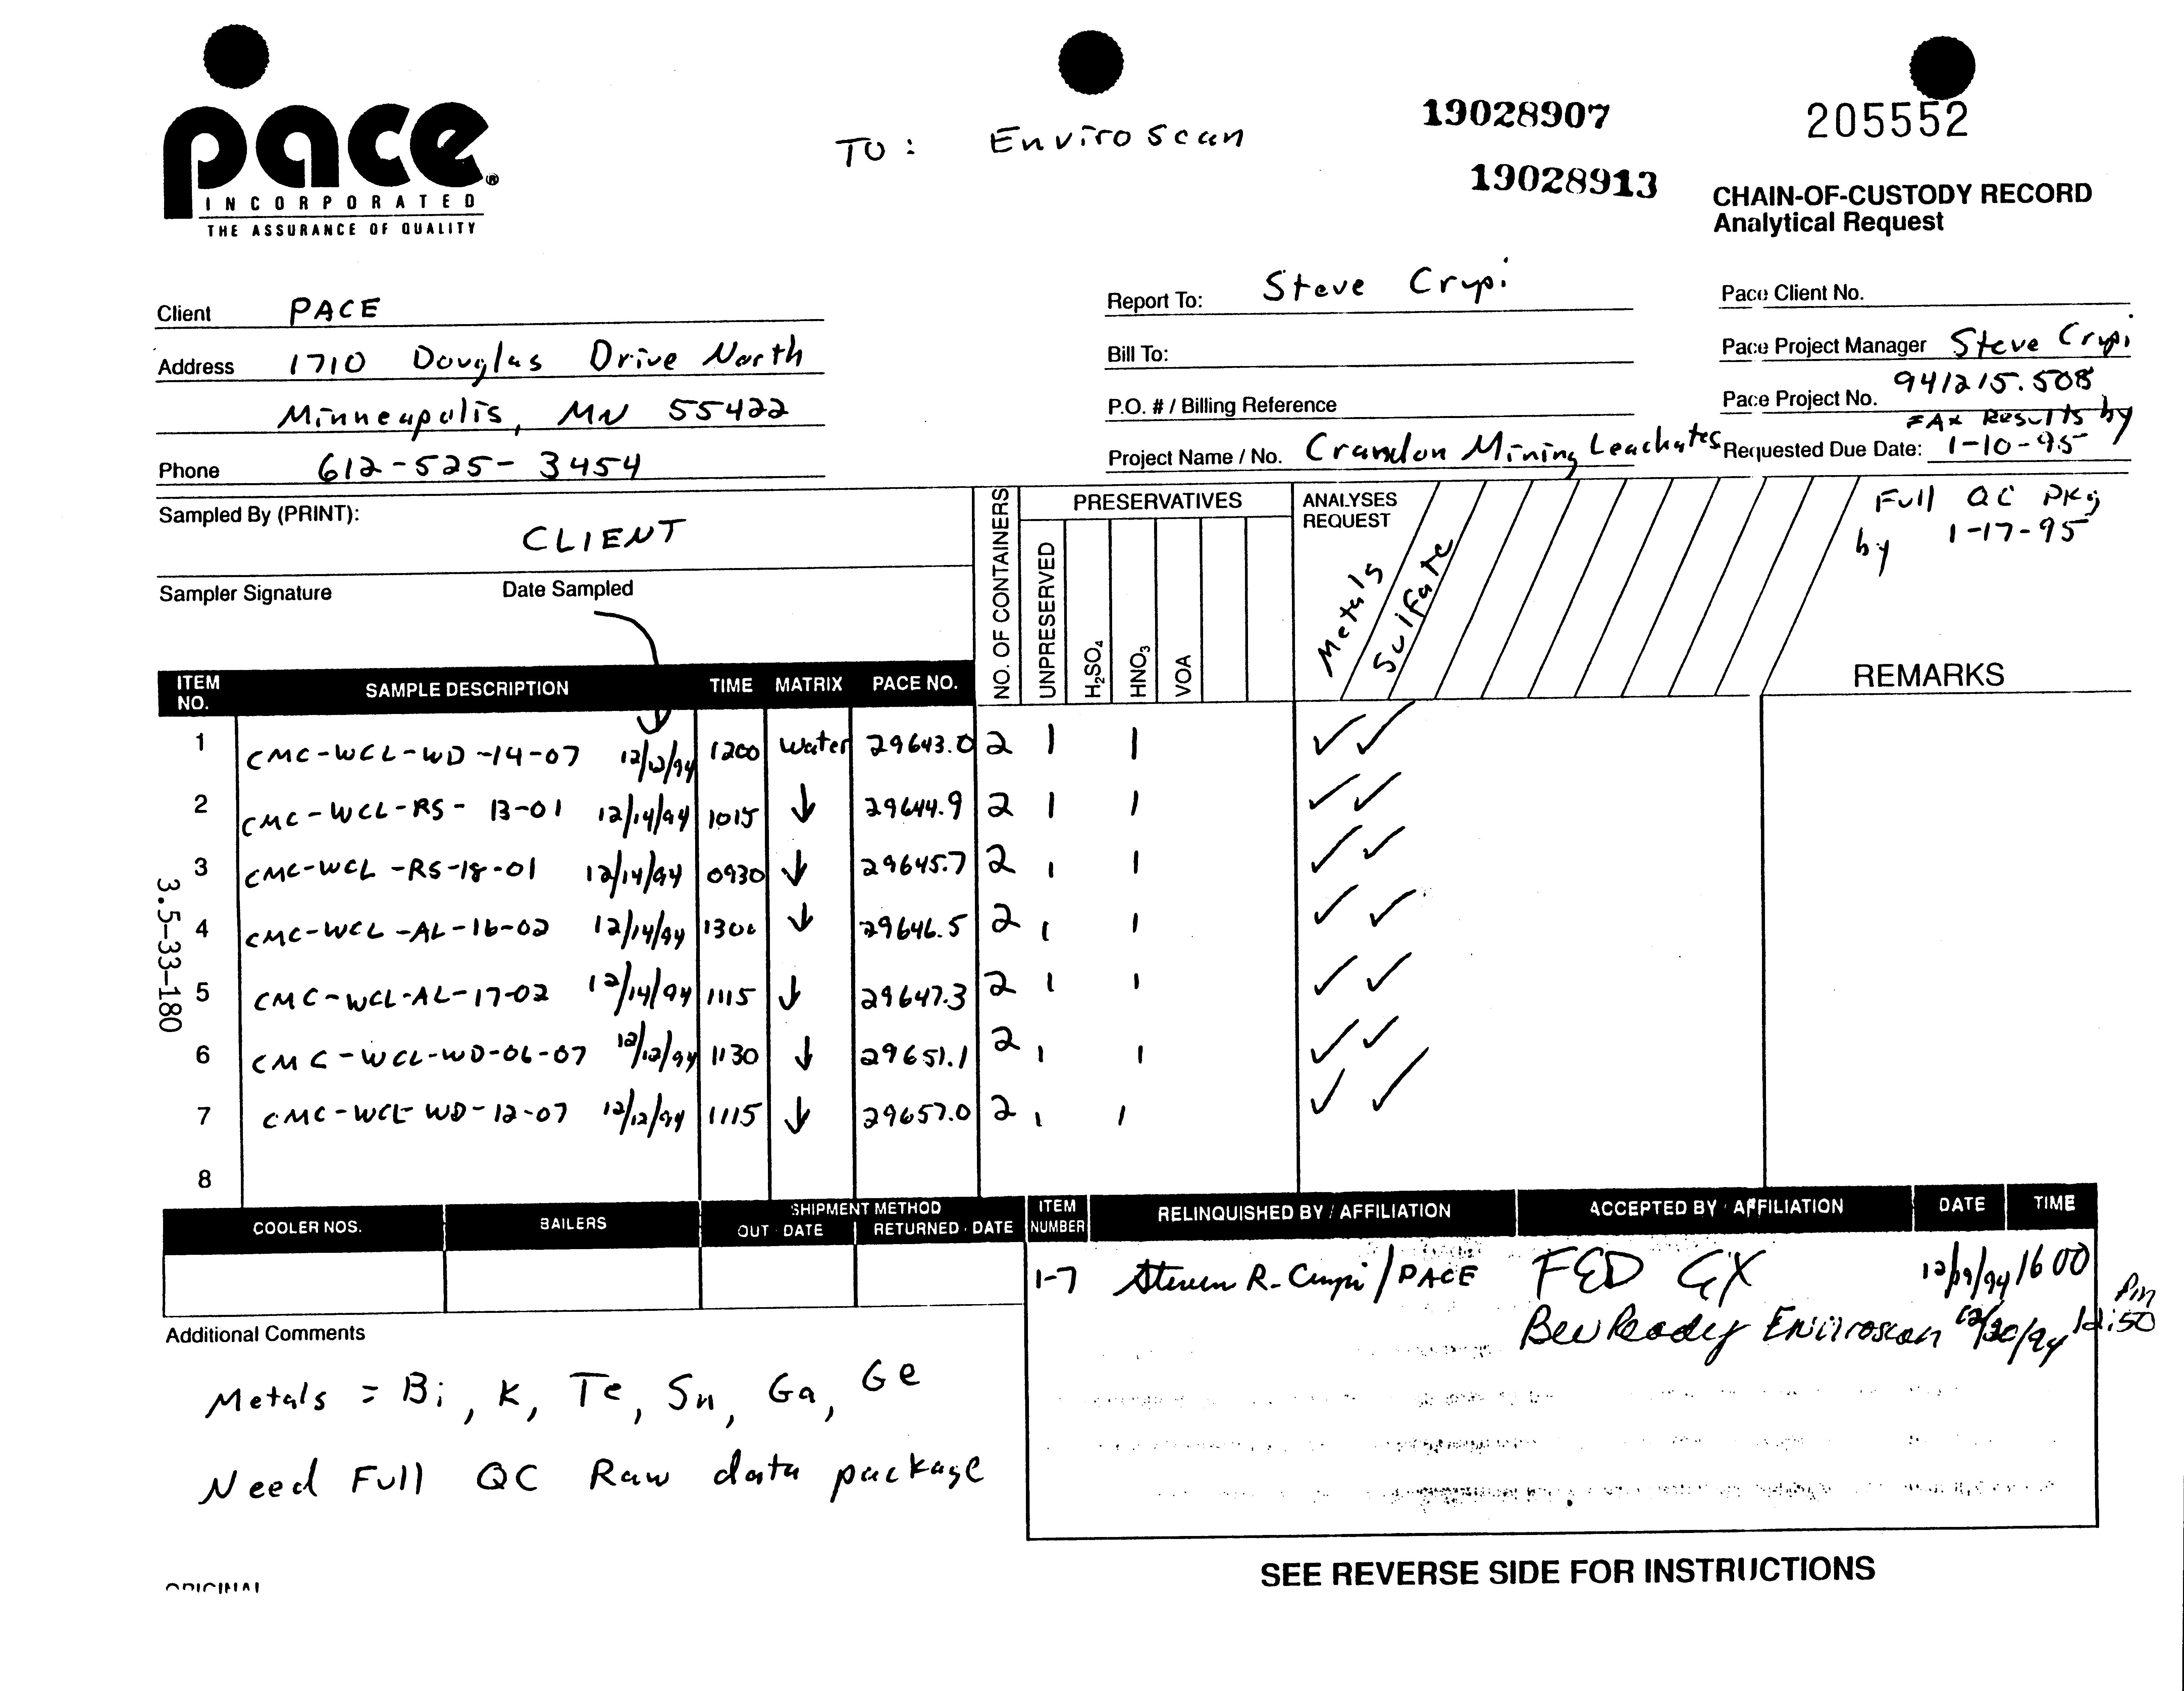 pace®
INCORPORATED
THE ASSURANCE OF QUALITY
TO: Enviroscan
19028907
19028913
205552
CHAIN-OF-CUSTODY RECORD
Analytical Request
Client PACE
Address 1710 Douglas Drive North
Minneapolis, MN 55422
Phone 612-525-3454
Report To: Steve Crupi
Bill To:
P.O. # / Billing Reference
Project Name / No. Crandon Mining Leachates
Pace Client No.
Pace Project Manager Steve Crupi
Pace Project No. 941215.508
FAX Results by
Requested Due Date: 1-10-95
Full QC Pkg
by 1-17-95
Sampled By (PRINT): CLIENT
Sampler Signature Date Sampled
NO. OF CONTAINERS
PRESERVATIVES
UNPRESERVED
H2SO4
HNO3
VOA
ANALYSES REQUEST
Metals
Sulfate
REMARKS
ITEM NO. SAMPLE DESCRIPTION TIME MATRIX PACE NO.
1 CMC-WCL-WD-14-07 12/12/94 1200 Water 29643.0 2 1 1 ✓ ✓
2 CMC-WCL-RS-13-01 12/14/94 1015 ↓ 29644.9 2 1 1 ✓ ✓
3 CMC-WCL-RS-18-01 12/14/94 0930 ↓ 29645.7 2 1 1 ✓ ✓
4 CMC-WCL-AL-16-02 12/14/94 1300 ↓ 29646.5 2 1 1 ✓ ✓
5 CMC-WCL-AL-17-02 12/14/94 1115 ↓ 29647.3 2 1 1 ✓ ✓
6 CMC-WCL-WD-06-07 12/12/94 1130 ↓ 29651.1 2 1 1 ✓ ✓
7 CMC-WCL-WD-12-07 12/12/94 1115 ↓ 29657.0 2 1 1 ✓ ✓
8
3.5-33-180
COOLER NOS. BAILERS SHIPMENT METHOD
OUT · DATE RETURNED · DATE
ITEM NUMBER RELINQUISHED BY / AFFILIATION ACCEPTED BY / AFFILIATION DATE TIME
1-7 Steven R. Crupi / PACE FED EX 12/19/94 1600
Bev Ready Enviroscan 12/20/94 12:50 Pm
Additional Comments
Metals = Bi, K, Te, Sn, Ga, Ge
Need Full QC Raw data package
SEE REVERSE SIDE FOR INSTRUCTIONS
ORIGINAL